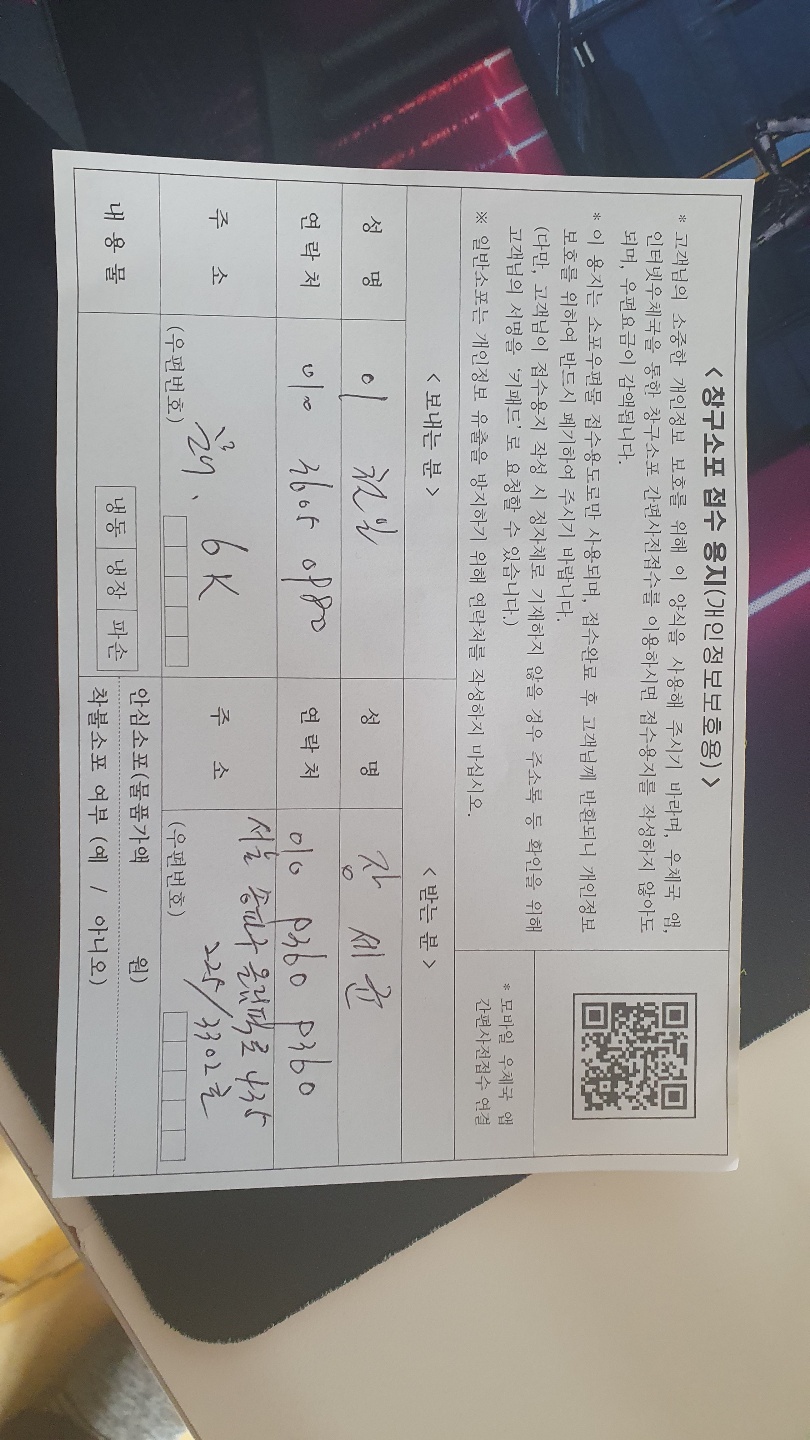 < 창구소포 접수 용지(개인정보보호용) >
* 고객님의 소중한 개인정보 보호를 위해 이 양식을 사용해 주시기 바라며, 우체국 앱,
인터넷우체국을 통한 창구소포 간편사전접수를 이용하시면 접수용지를 작성하지 않아도
되며, 우편요금이 감액됩니다.
* 이 용지는 소포우편물 접수용도로만 사용되며, 접수완료 후 고객님께 반환되니 개인정보
보호를 위하여 반드시 폐기하여 주시기 바랍니다.
(다만, 고객님이 접수용지 작성 시 정자체로 기재하지 않을 경우 주소록 등 확인을 위해
고객님의 서명을 '키패드'로 요청할 수 있습니다.)
※ 일반소포는 개인정보 유출을 방지하기 위해 연락처를 작성하지 마십시오.
* 모바일 우체국 앱
간편사전접수 연결
< 보내는 분 >
< 받는 분 >
성 명
이
성 명
강 세
연 락 처
010 3605
연 락 처
010
주 소
6K
(우편번호)
주 소
서울 송파구 올림픽로
(우편번호)
내 용 물
냉동 냉장 파손
안심소포(물품가액 원)
착불소포 여부 (예 / 아니오)